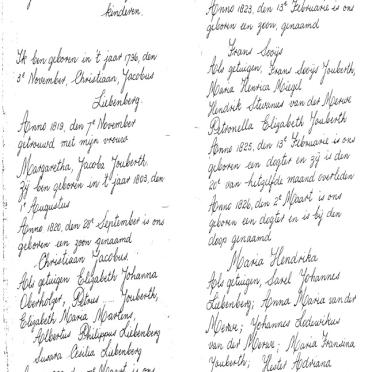 kinderen.
Ik ben geboren in 't jaar 1796, den
3e November, Christiaan, Jacobus
Liebenberg.
Anno 1819, den 7e November
getrouwd met mijn vrouw
Margaretha, Jacoba Youberth,
Zij ben geboren in 't jaar 1803, den
1e Augustus
Anno 1820, den 28e September is ons
geboren een zoon genaamd
Christiaan Jacobus.
Als getuigen Elizabeth Johanna
Oberholzer, Petrus Youberth,
Elizabeth Maria Martins,
Albertus Philippus Liebenberg
Susara Cecilia Liebenberg
Maart is ons
Anno 1823, den 13e Februarie is ons
geboren een zoon, genaamd
Frans Sooijs
Als getuigen, Frans Sooijs Youberth,
Maria Henrica Miegel
Hendrik Stevanus van der Merwe
Petronella Elizabeth Youberth
Anno 1825, den 13e Februarie is ons
geboren een dogter en zij is den
20e van hetzelfde maand overleden
Anno 1826, den 2e Maart is ons
geboren een dogter en is bij den
doop genaamd
Maria Hendrika
Als getuigen, Sarel Johannes
Liebenberg; Anna Maria van der
Merwe; Johannes Lodewikus
van der Merwe; Maria Fransina
Youberth; Hester Adriana